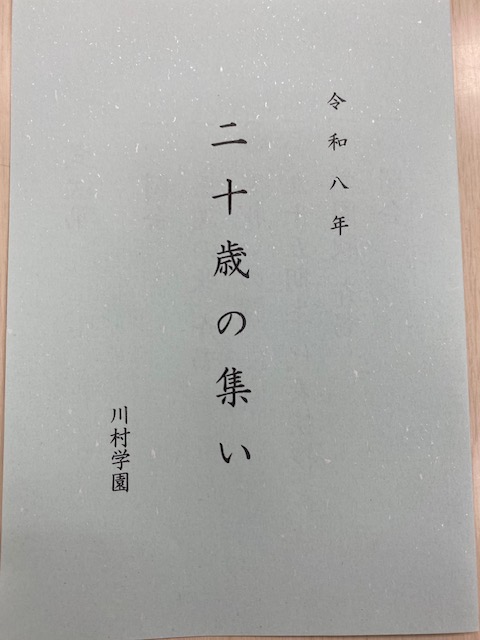 令和八年
二十歳の集い
川村学園